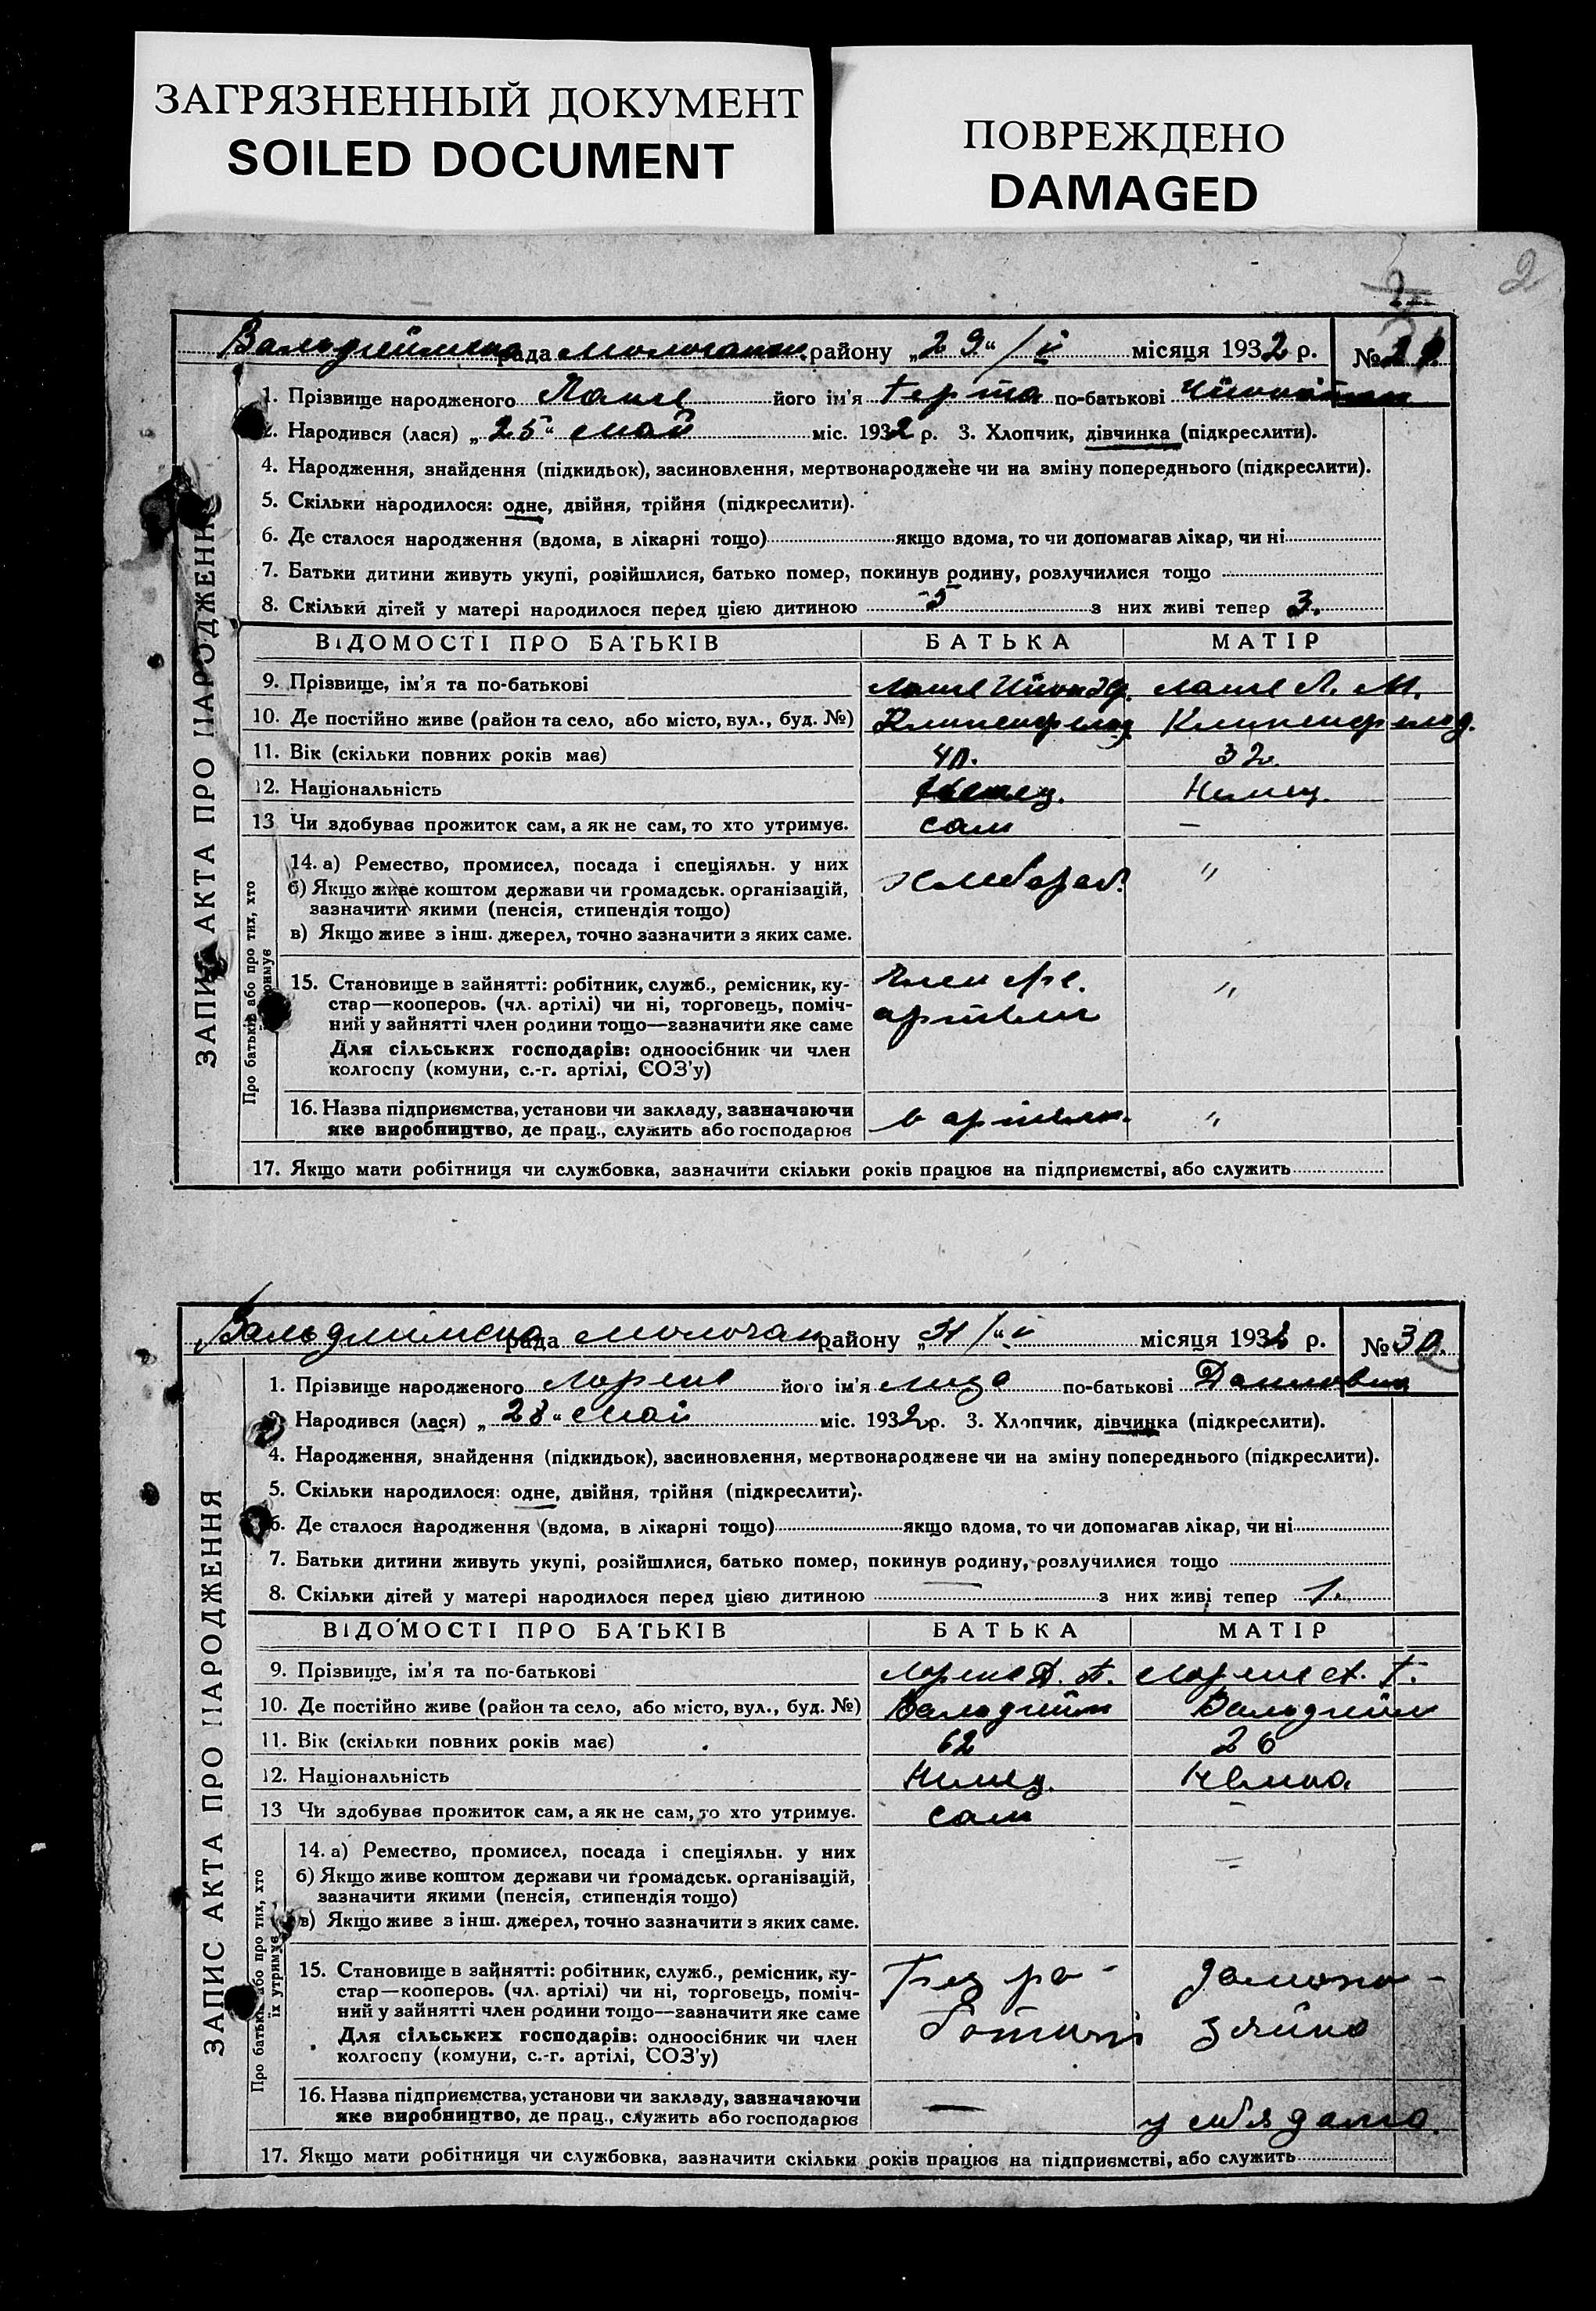 ЗАГРЯЗНЕННЫЙ ДОКУМЕНТ
SOILED DOCUMENT
ПОВРЕЖДЕНО
DAMAGED
2
рада района району „29“ / V місяця 1932 р. №
1. Прізвище народженого його ім'я Герта по-батькові
Народився (лася) „25“ май міс. 1932 р. 3. Хлопчик, дівчинка (підкреслити).
4. Народження, знайдення (підкидьок), засиновлення, мертвонароджене чи на зміну попереднього (підкреслити).
5. Скільки народилося: одне, двійня, трійня (підкреслити).
6. Де сталося народження (вдома, в лікарні тощо) якщо вдома, то чи допомагав лікар, чи ні
7. Батьки дитини живуть укупі, розійшлися, батько помер, покинув родину, розлучилися тощо
8. Скільки дітей у матері народилося перед цією дитиною з них живі тепер 3.
ЗАПИС АКТА ПРО НАРОДЖЕННЯ
ВІДОМОСТІ ПРО БАТЬКІВ БАТЬКА МАТІР
9. Прізвище, ім'я та по-батькові
10. Де постійно живе (район та село, або місто, вул., буд. №)
11. Вік (скільки повних років має) 40. 32.
12. Національність Немец. Немец.
13 Чи здобував прожиток сам, а як не сам, то хто утримує. сам —
Про батьків або про тих, хто
14. а) Ремество, промисел, посада і спеціяльн. у них
б) Якщо живе коштом держави чи громадськ. організацій,
зазначити якими (пенсія, стипендія тощо)
в) Якщо живе з інш. джерел, точно зазначити з яких саме.
Хлебороб. "
15. Становище в зайнятті: робітник, служб., ремісник, ку-
стар—кооперов. (чл. артілі) чи ні, торговець, поміч-
ний у зайнятті член родини тощо—зазначити яке саме
Для сільських господарів: одноосібник чи член
колгоспу (комуни, с.-г. артілі, СОЗ'у)
Член
артели "
16. Назва підприємства, установи чи закладу, зазначаючи
яке виробництво, де прац., служить або господарює
в артели. "
17. Якщо мати робітниця чи службовка, зазначити скільки років працює на підприємстві, або служить
рада Молочан району місяця 1932 р. № 30.
1. Прізвище народженого Лоренс його ім'я Лиза по-батькові
Народився (лася) „28“ май міс. 1932 р. 3. Хлопчик, дівчинка (підкреслити).
4. Народження, знайдення (підкидьок), засиновлення, мертвонароджене чи на зміну попереднього (підкреслити).
5. Скільки народилося: одне, двійня, трійня (підкреслити).
6. Де сталося народження (вдома, в лікарні тощо) якщо вдома, то чи допомагав лікар, чи ні
7. Батьки дитини живуть укупі, розійшлися, батько помер, покинув родину, розлучилися тощо
8. Скільки дітей у матері народилося перед цією дитиною — з них живі тепер 1.
ЗАПИС АКТА ПРО НАРОДЖЕННЯ
ВІДОМОСТІ ПРО БАТЬКІВ БАТЬКА МАТІР
9. Прізвище, ім'я та по-батькові Лоренс Д. П. Лоренс А. Г.
10. Де постійно живе (район та село, або місто, вул., буд. №) Вальдгейм Вальдгейм
11. Вік (скільки повних років має) 62 26
12. Національність Немец. Немка
13 Чи здобував прожиток сам, а як не сам, то хто утримує. сам —
Про батьків або про тих, хто
їх утримує
14. а) Ремество, промисел, посада і спеціяльн. у них
б) Якщо живе коштом держави чи громадськ. організацій,
зазначити якими (пенсія, стипендія тощо)
в) Якщо живе з інш. джерел, точно зазначити з яких саме.
15. Становище в зайнятті: робітник, служб., ремісник, ку-
стар—кооперов. (чл. артілі) чи ні, торговець, поміч-
ний у зайнятті член родини тощо—зазначити яке саме
Для сільських господарів: одноосібник чи член
колгоспу (комуни, с.-г. артілі, СОЗ'у)
Без ра- домохо-
ботный зяйка
16. Назва підприємства, установи чи закладу, зазначаючи
яке виробництво, де прац., служить або господарює
— у себя дома.
17. Якщо мати робітниця чи службовка, зазначити скільки років працює на підприємстві, або служить